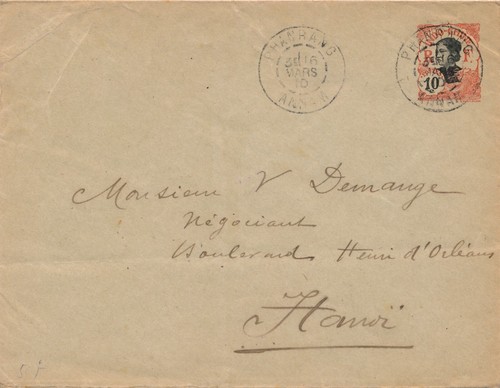 PHANRANG
16
MARS
10
ANNAM
INDO-CHINE
R F
10
PHANRANG
ANNAM
Monsieur V Demange
Négociant
Boulevard Henri d'Orléans
Hanoï